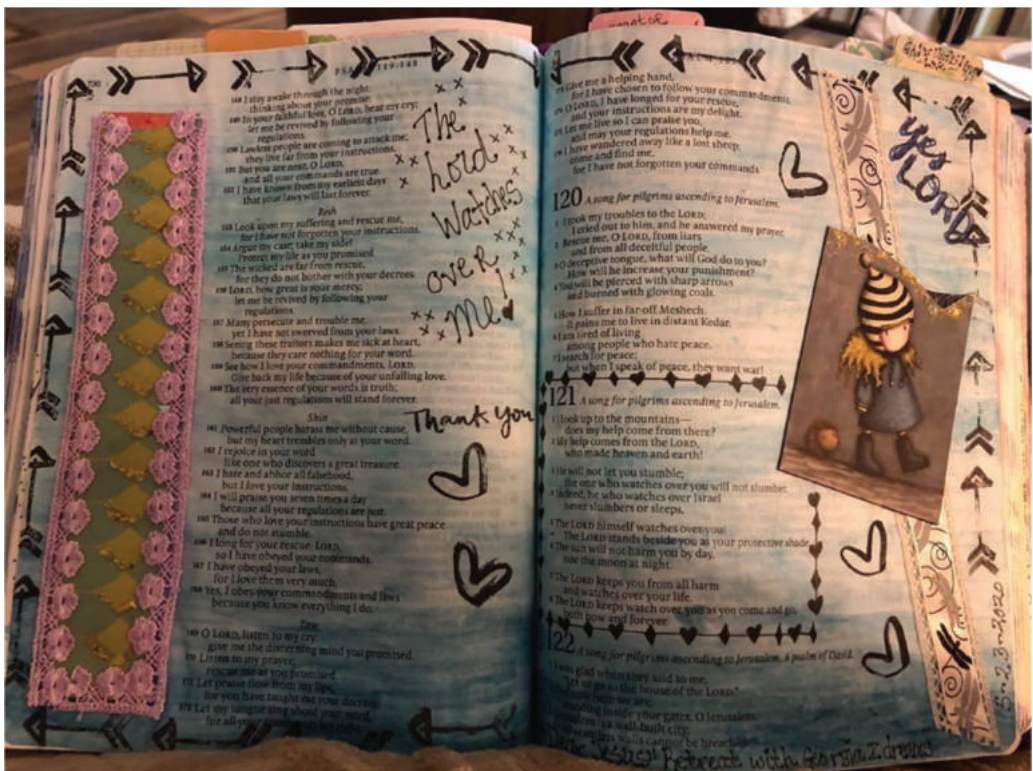 148 I stay awake through the night,
thinking about your promise.
149 In your faithful love, O LORD, hear my cry;
let me be revived by following your
regulations.
150 Lawless people are coming to attack me;
they live far from your instructions.
151 But you are near, O LORD,
and all your commands are true.
152 I have known from my earliest days
that your laws will last forever.
Resh
153 Look upon my suffering and rescue me,
for I have not forgotten your instructions.
154 Argue my case; take my side!
Protect my life as you promised.
155 The wicked are far from rescue,
for they do not bother with your decrees.
156 LORD, how great is your mercy;
let me be revived by following your
regulations.
157 Many persecute and trouble me,
yet I have not swerved from your laws.
158 Seeing these traitors makes me sick at heart,
because they care nothing for your word.
159 See how I love your commandments, LORD.
Give back my life because of your unfailing love.
160 The very essence of your words is truth;
all your just regulations will stand forever.
Shin
161 Powerful people harass me without cause,
but my heart trembles only at your word.
162 I rejoice in your word
like one who discovers a great treasure.
163 I hate and abhor all falsehood,
but I love your instructions.
164 I will praise you seven times a day
because all your regulations are just.
165 Those who love your instructions have great peace
and do not stumble.
166 I long for your rescue, LORD,
so I have obeyed your commands.
167 I have obeyed your laws,
for I love them very much.
168 Yes, I obey your commandments and laws
because you know everything I do.
Taw
169 O LORD, listen to my cry;
give me the discerning mind you promised.
170 Listen to my prayer;
rescue me as you promised.
171 Let praise flow from my lips,
for you have taught me your decrees.
172 Let my tongue sing about your word,
for all
The
Lord
Watches
over
Me!
Thank you
Give me a helping hand,
for I have chosen to follow your commandments.
O LORD, I have longed for your rescue,
and your instructions are my delight.
Let me live so I can praise you,
and may your regulations help me.
I have wandered away like a lost sheep;
come and find me,
for I have not forgotten your commands.
120 A song for pilgrims ascending to Jerusalem.
1 I took my troubles to the LORD;
I cried out to him, and he answered my prayer.
2 Rescue me, O LORD, from liars
and from all deceitful people.
3 O deceptive tongue, what will God do to you?
How will he increase your punishment?
4 You will be pierced with sharp arrows
and burned with glowing coals.
5 How I suffer in far-off Meshech.
It pains me to live in distant Kedar.
6 I am tired of living
among people who hate peace.
7 I search for peace;
but when I speak of peace, they want war!
121 A song for pilgrims ascending to Jerusalem.
1 I look up to the mountains—
does my help come from there?
2 My help comes from the LORD,
who made heaven and earth!
3 He will not let you stumble;
the one who watches over you will not slumber.
4 Indeed, he who watches over Israel
never slumbers or sleeps.
5 The LORD himself watches over you!
The LORD stands beside you as your protective shade.
6 The sun will not harm you by day,
nor the moon at night.
7 The LORD keeps you from all harm
and watches over your life.
8 The LORD keeps watch over you as you come and go,
both now and forever.
122 A song for pilgrims ascending to Jerusalem. A psalm of David.
1 I was glad when they said to me,
"Let us go to the house of the LORD."
we are,
standing inside your gates, O Jerusalem.
is a well-built city;
walls cannot be
yes
LORD
5-23-2020
"Jesus" Retreat with Georgia